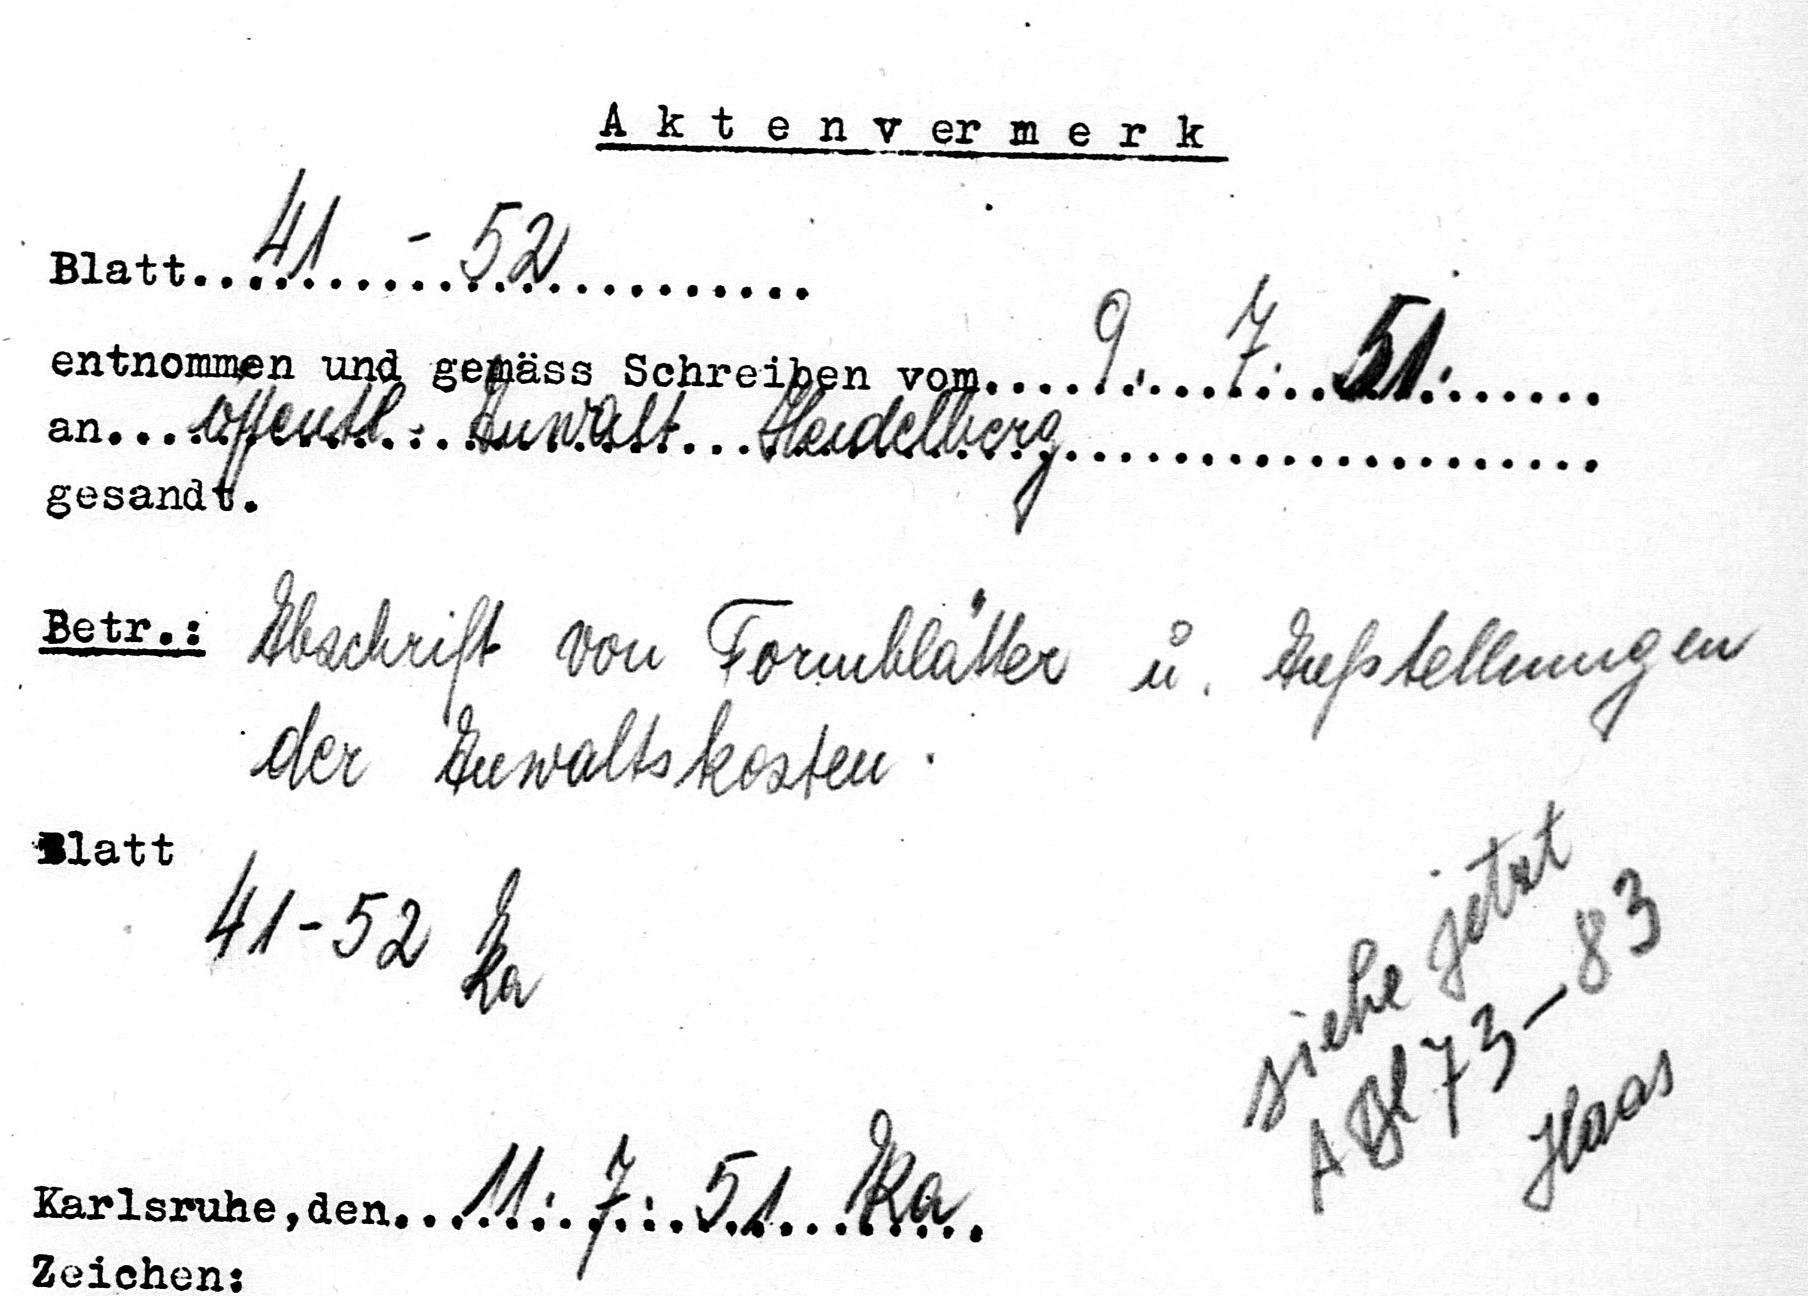 Aktenvermerk
Blatt 41 - 52
entnommen und gemäss Schreiben vom 9. 7. 51.
an öffentl. Anwalt Heidelberg
gesandt.
Betr.: Abschrift von Formblätter u. Aufstellungen
der Anwaltskosten.
Blatt
41-52 Ka
siehe jetzt
A Bl 73-83
Haas
Karlsruhe, den 11. 7. 51 Ka
Zeichen: